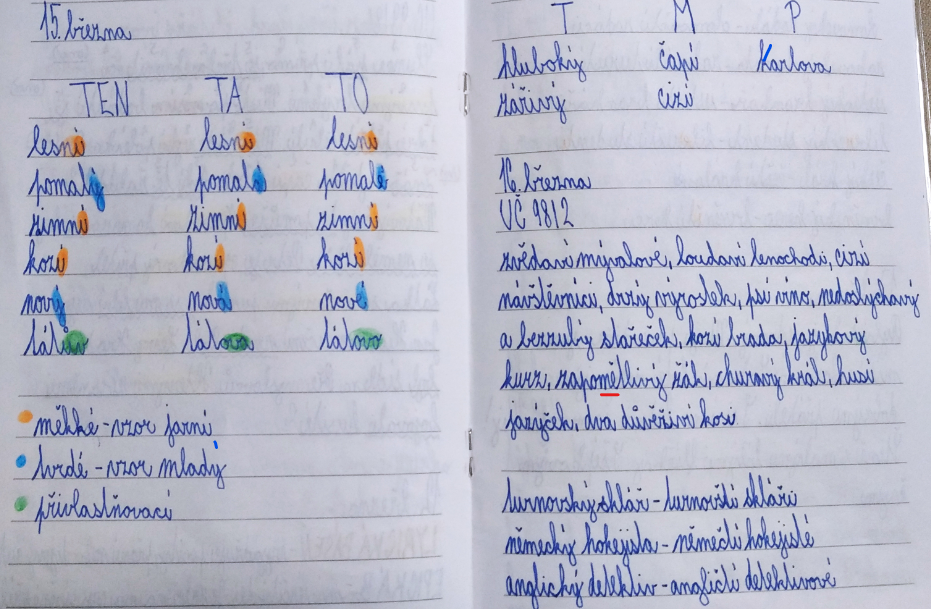 15. března
TEN TA TO
lesní lesní lesní
pomalý pomalá pomalé
zimní zimní zimní
kozí kozí kozí
nový nová nové
tátův tátova tátovo
měkké - vzor jarní
tvrdé - vzor mladý
přivlastňovací
T M P
hluboký čapí Karlova
zářivý cizí
16. března
UČ 98/2
zvědaví mývalové, loudaví lenochodi, cizí
návštěvníci, drzý výrostek, psí víno, nedoslýchavý
a bezzubý stařeček, kozí brada, jazykový
kurz, zapomětlivý žák, churavý král, husí
jazýček, dva důvěřiví kosi.
turnovský sklář - turnovští skláři
německý hokejista - němečtí hokejisté
anglický detektiv - angličtí detektivové